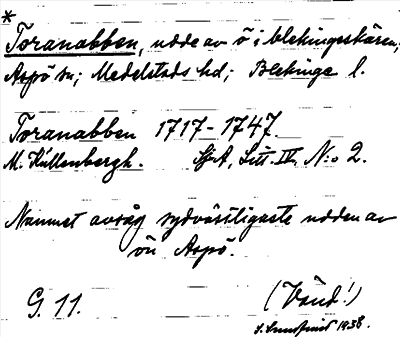 *
Toranabben, udde av ö i blekingeskären;
Aspö sn; Medelstads hd; Blekinge l.
Toranabben 1717-1747.
M. Küllenbergh. SjA, Litt. IV, N:o 2.
Namnet avsåg sydvästligaste udden av
ön Aspö.
G. 11. (Vänd!)
1938.